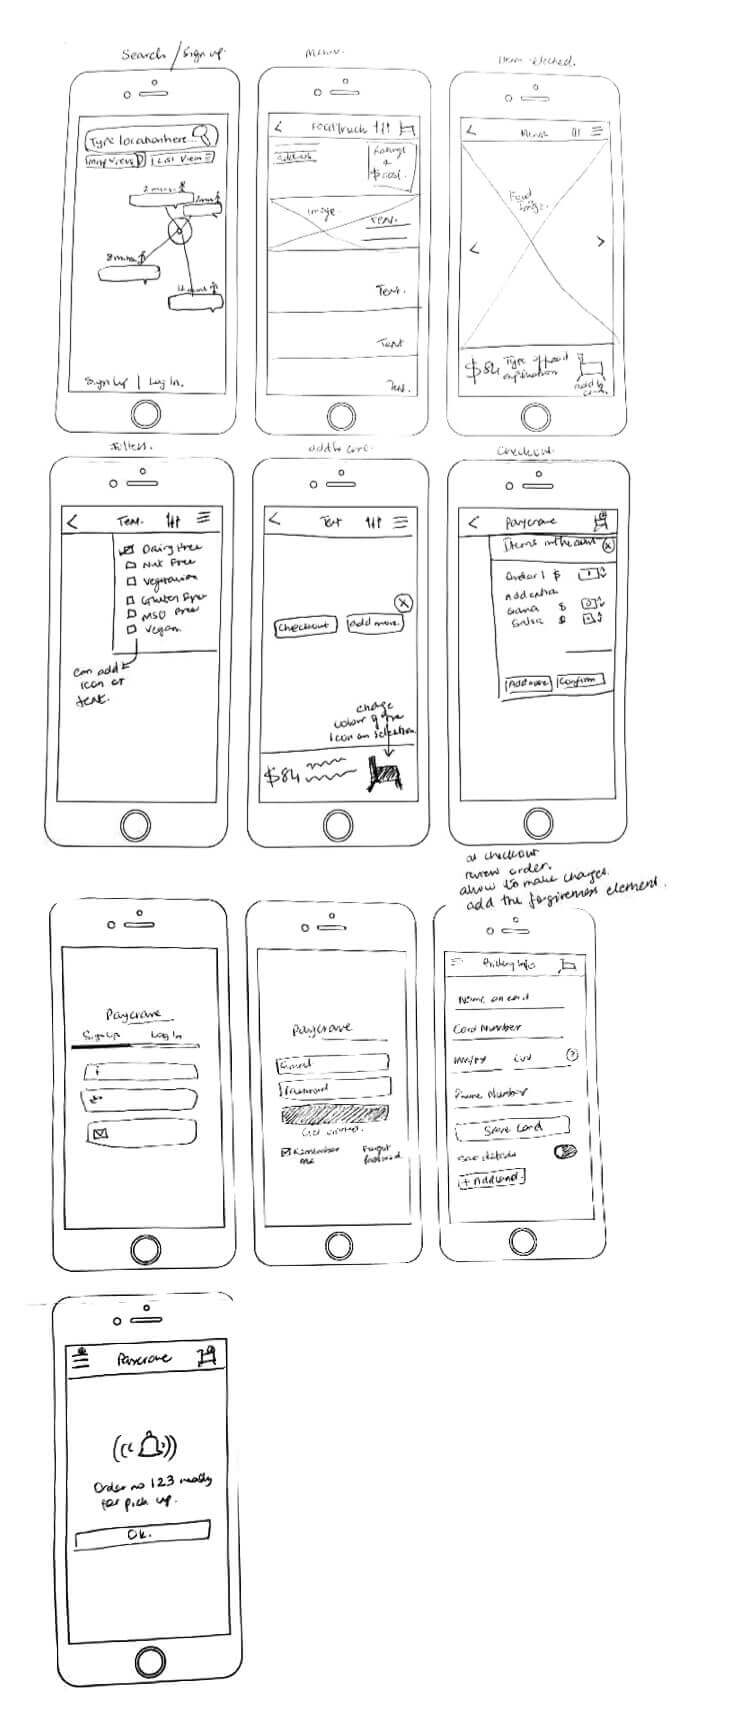 Search / Sign up.
Menu.
Item selected.
Type location here...
Map View
List View
2 mins
8 mins
Sign Up | Log In.
Food Truck
address
Ratings
&
$ cost.
Image.
Text.
Text.
Text
Text.
Menu
Food
Image.
$84
Type of food
explanation
add to
cart.
Filters.
Text.
Dairy Free
Nut Free
Vegetarian
Gluten Free
MSG Free
Vegan.
can add
icon or
text.
add to cart.
Text
Checkout
add more.
change
colour of the
icon on selection.
$84
Checkout.
Paycrave
Items in the cart
Order 1 $
Add extra
$
Salsa $
Add more
Confirm
at checkout
review order.
allow to make changes.
add the forgiveness element.
Paycrave
Sign Up
Log In
f
Paycrave
Email
Password
Get started.
Remember
me
Forgot
password.
Billing Info
Name on card
Card Number
MM/YY
CVV
?
Phone Number
Save Card
+ Add card.
Paycrave
Order no 123 ready
for pick up.
Ok.